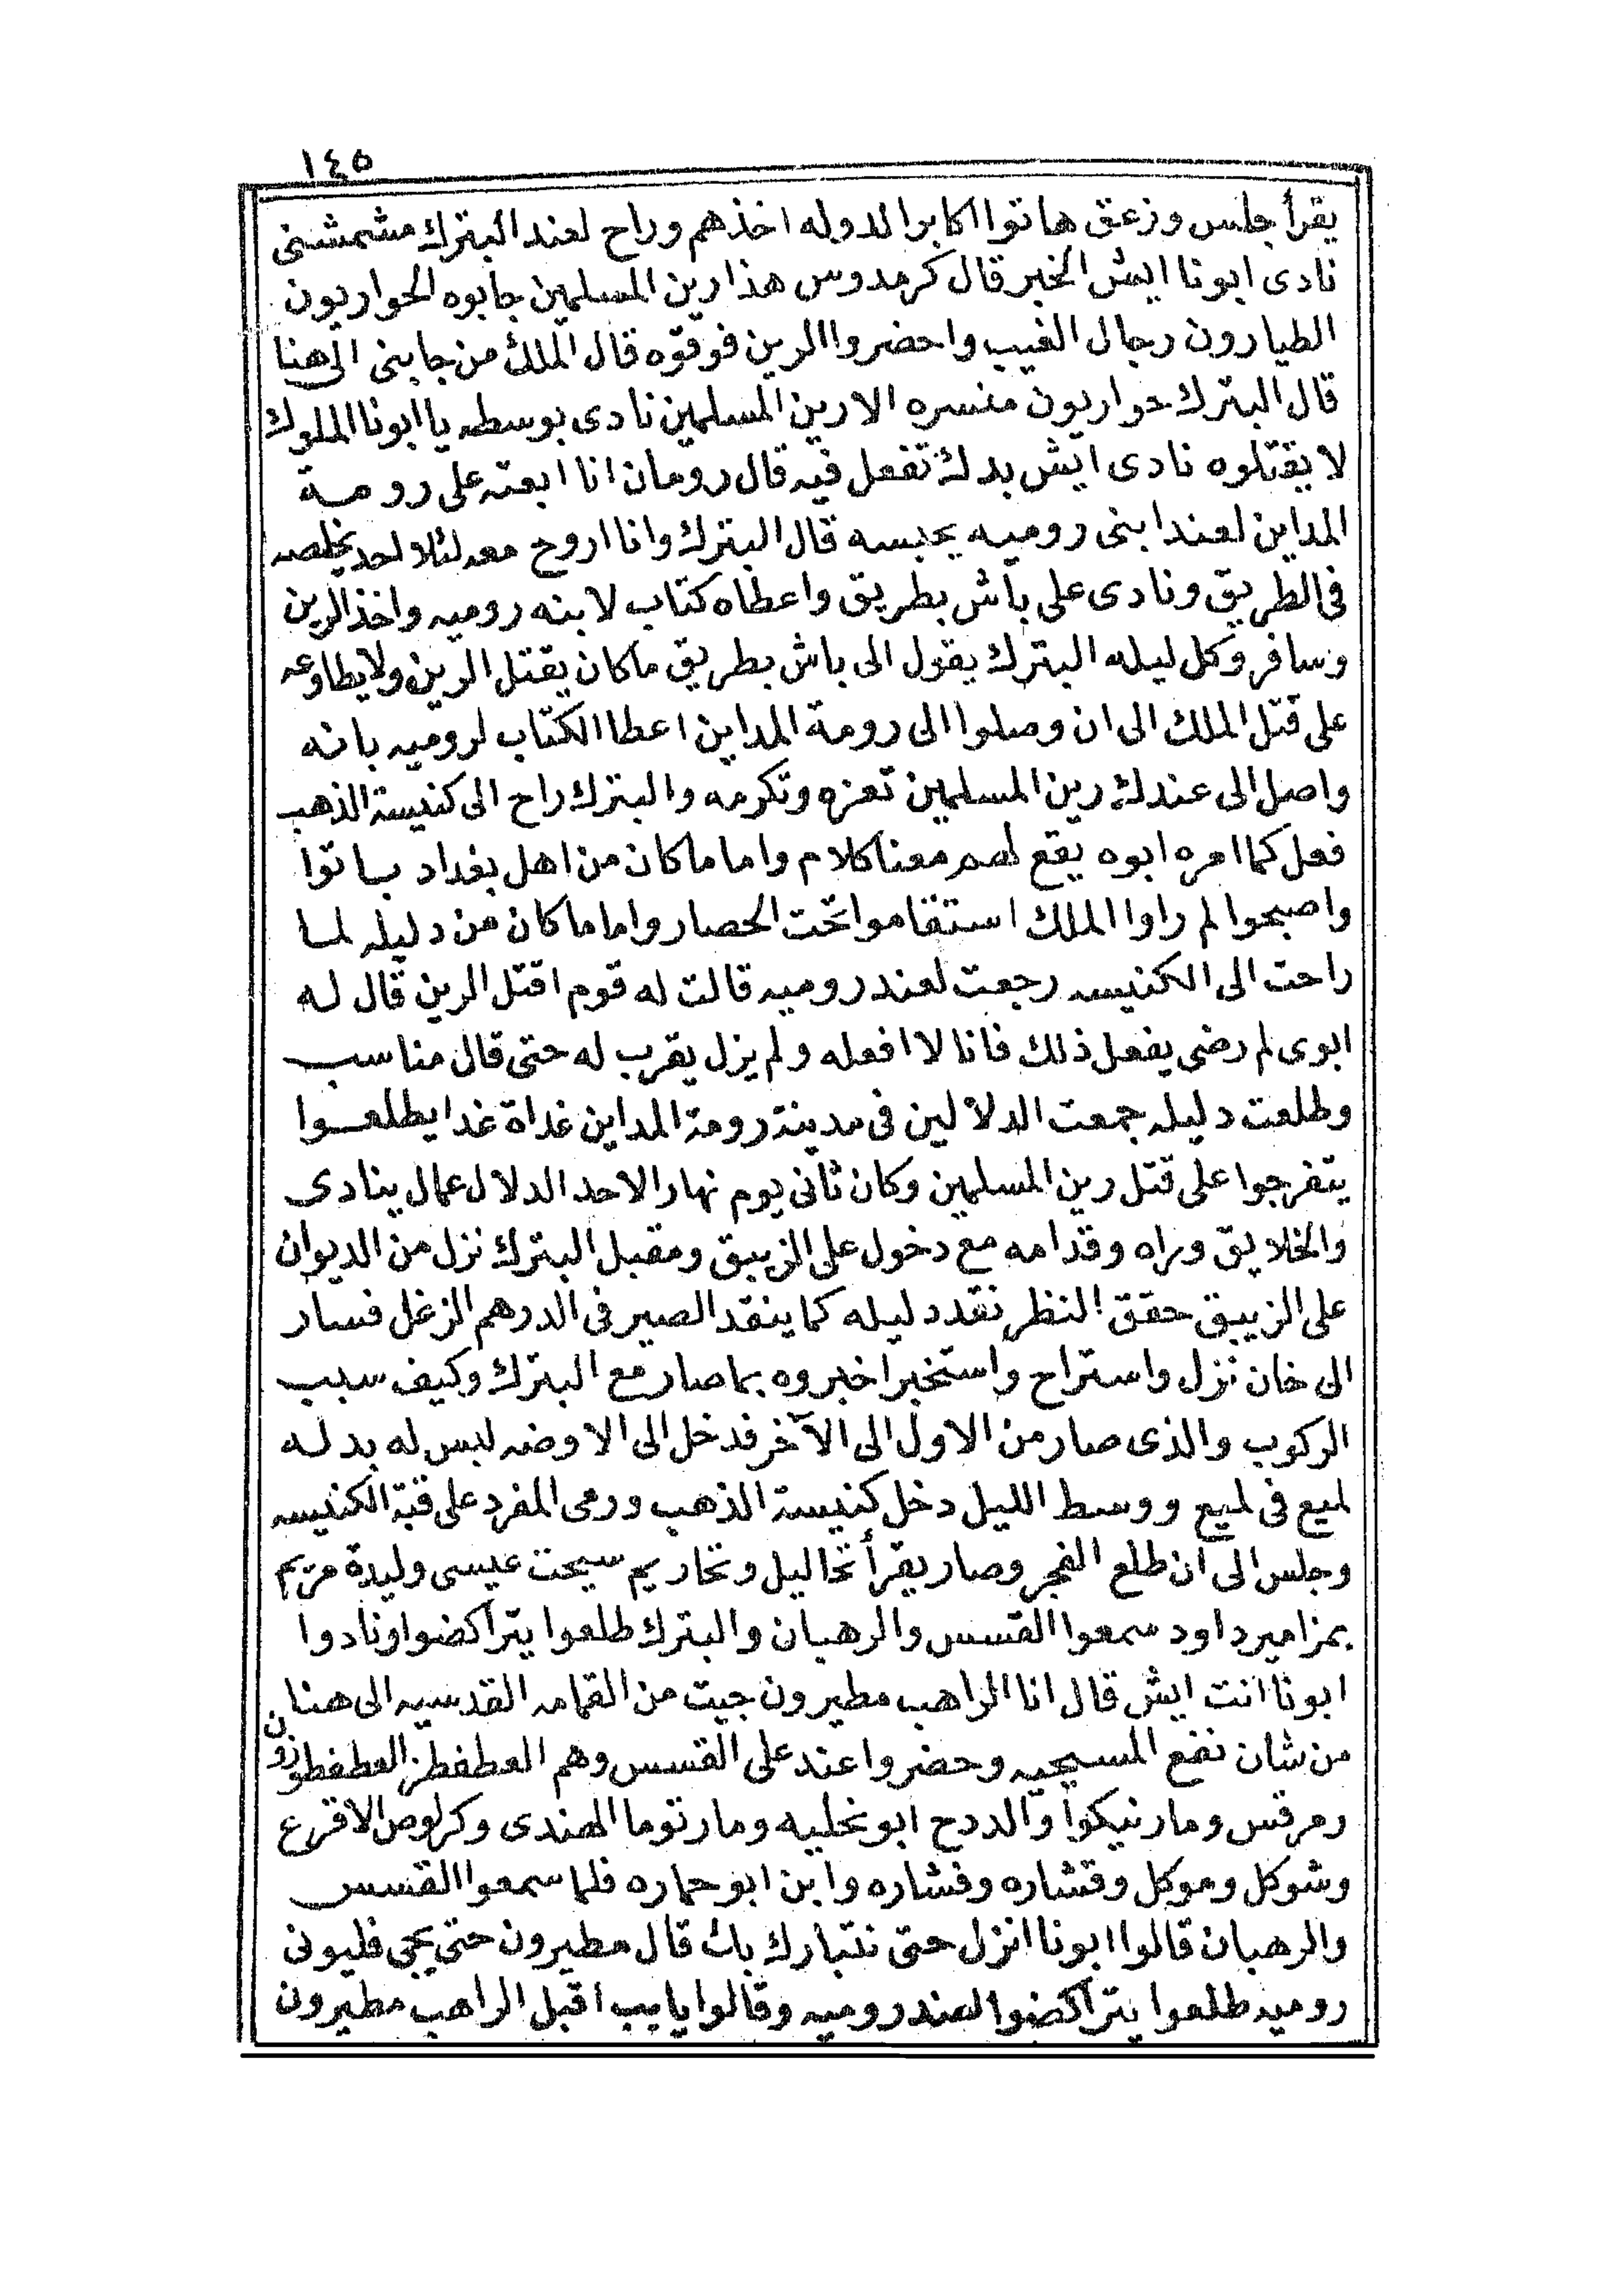 ١٤٥
يقرأ جلس وزعق هاتوا اكابر الدوله اخذهم وراح لعند البترك مشمشنى
نادى ابونا ايش الخبر قال كرمدوس هذا رين المسلمين جابوه الحواريون
الطيارون رجال الغيب واحضروا الرين فوقوه قال الملك من جابنى الى هنا
قال البترك حواريون منسره الا رين المسلمين نادى بوسطه يا ابونا الملوك
لا يقتلوه نادى ايش بدك تفعل فيه قال رومان انا ابعته على رومة
المداين لعند ابنى روميه يحبسه قال البترك وانا اروح معه لئلا احد يخلصه
فى الطريق ونادى على باش بطريق واعطاه كتاب لابنه روميه واخذ الرين
وسافر وكل ليله البترك يقول الى باش بطريق ماكان يقتل الرين ولا يطاوعه
على قتل الملك الى ان وصلوا الى رومة المداين اعطا الكتاب لروميه بانه
واصل الى عندك رين المسلمين تعزه وتكرمه والبترك راح الى كنيسة الذهب
فعل كما امره ابوه يقع لهم معنا كلام واما ماكان من اهل بغداد باتوا
واصبحوا لم راوا الملك استقاموا تحت الحصار واما ماكان من دليله لما
راحت الى الكنيسه رجعت لعند روميه قالت له قوم اقتل الرين قال له
ابوى لم رضى يفعل ذلك فانا لا افعله ولم يزل يقرب له حتى قال مناسب
وطلعت دليله جمعت الدلالين فى مدينة رومة المداين غداة غدا يطلعوا
يتفرجوا على قتل رين المسلمين وكان ثانى يوم نهار الاحد الدلال عمال ينادى
والخلايق وراه وقدامه مع دخول على الزيبق ومقبل البترك نزل من الديوان
على الزيبق حقق النظر نقد دليله كما ينقد الصير فى الدرهم الزغل فسار
الى خان نزل واستراح واستخبر اخبروه بما صار مع البترك وكيف سبب
الركوب والذى صار من الاول الى الآخر فدخل الى الاوضه لبس له بدله
لميع فى لميع ووسط الليل دخل كنيسة الذهب ورمى المفرد على قبة الكنيسه
وجلس الى ان طلع الفجر وصار يقرأ تخاليل وتخاريم سيحت عيسى وليدة مريم
بمزامير داود سمعوا القسس والرهبان والبترك طلعوا يتراكضوا ونادوا
ابونا انت ايش قال انا الراهب مطيرون جيت من القمامه القدسيه الى هنا
من شان نفع المسيحيه وحضروا عند على القسس وهم العطفطز العطفطوزون
ومرقس ومار نيكوا والدردح ابو نخليه ومار توما الهندى وكرلوص الاقرع
وشوكل وموكل وقشاره وفشاره وابن ابو حماره فلما سمعوا القسس
والرهبان قالوا ابونا انزل حتى نتبارك بك قال مطيرون حتى يجى فليونى
روميه طلعوا يتراكضوا لعند روميه وقالوا يا بب اقبل الراهب مطيرون